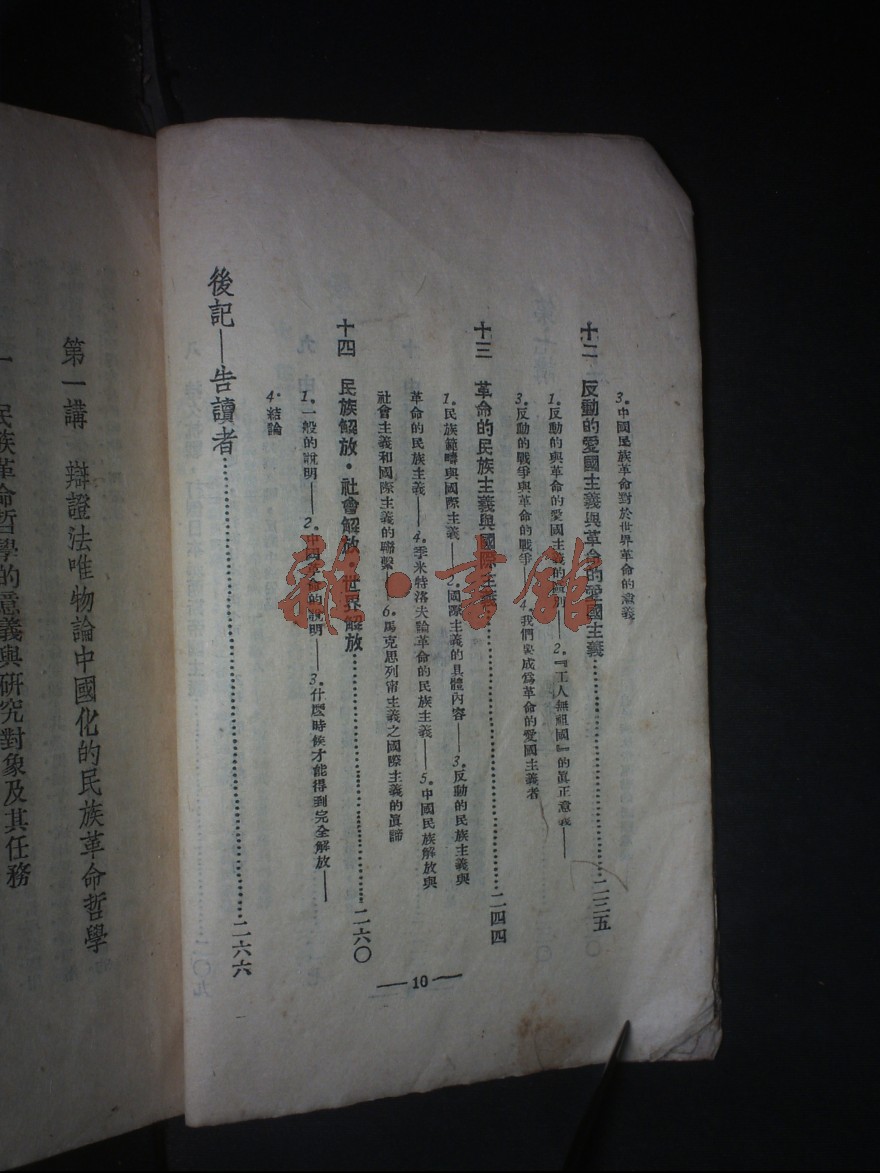 3. 中國民族革命對於世界革命的意義
十二　反動的愛國主義與革命的愛國主義……二三五
1. 反動的與革命的愛國主義的 ——2.『工人無祖國』的眞正意義——
3. 反動的戰爭與革命的戰爭——4. 我們要成爲革命的愛國主義者
十三　革命的民族主義與國際主義……二四四
1. 民族範疇與國際主義——2. 國際主義的具體內容——3. 反動的民族主義與
革命的民族主義——4. 季米特洛夫論革命的民族主義——5. 中國民族解放與
社會主義和國際主義的聯繫——6. 馬克思列甯主義之國際主義的眞諦
十四　民族解放・社會解放・世界解放……二六〇
1. 一般的說明——2. 中國革命的說明——3. 什麼時候才能得到完全解放——
4. 結論
後記——告讀者……二六六
—10—
第一講　辯證法唯物論中國化的民族革命哲學
一　民族革命哲學的意義與研究對象及其任務
雜・書館